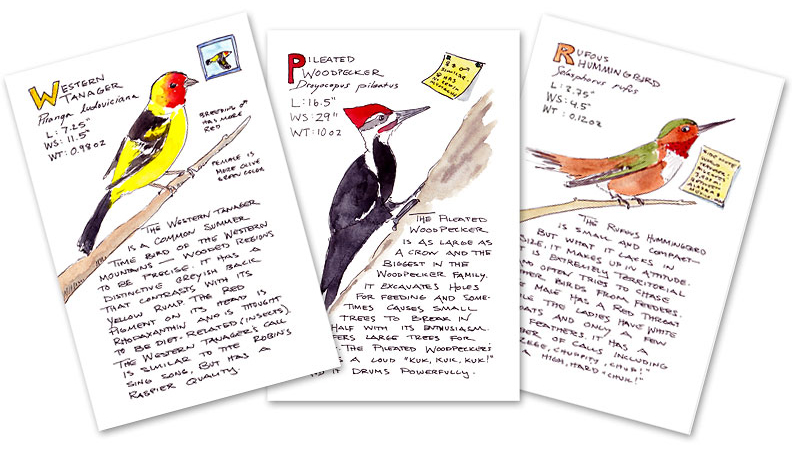 WESTERN
TANAGER
Piranga ludoviciana
L: 7.25"
WS: 11.5"
WT: 0.98 oz
BREEDING ♂
HAS MORE
RED
FEMALE IS
MORE OLIVE
GREEN COLOR
THE WESTERN TANAGER
IS A COMMON SUMMER
TIME BIRD OF THE WESTERN
MOUNTAINS — WOODED REGIONS
TO BE PRECISE. IT HAS A
DISTINCTIVE GREYISH BACK
THAT CONTRASTS WITH ITS
YELLOW RUMP. THE RED
PIGMENT ON ITS HEAD IS
RHODAXANTHIN AND IS THOUGHT
TO BE DIET-RELATED (INSECTS).
THE WESTERN TANAGER'S CALL
IS SIMILAR TO THE ROBIN'S
SING SONG, BUT HAS A
RASPIER QUALITY.
PILEATED
WOODPECKER
Dryocopus pileatus
L: 16.5"
WS: 29"
WT: 10 oz
SIMILAR.
THE PILEATED
WOODPECKER
IS AS LARGE AS
A CROW AND THE
BIGGEST IN THE
WOODPECKER FAMILY.
IT EXCAVATES HOLES
FOR FEEDING AND SOME-
TIMES CAUSES SMALL
TREES TO BREAK IN
HALF WITH ITS ENTHUSIASM.
FERS LARGE TREES FOR
. THE PILEATED WOODPECKER'S
S A LOUD "KUK, KUK, KUK!"
IT DRUMS POWERFULLY.
RUFOUS
HUMMINGBIRD
Selasphorus rufus
L: 3.75"
WS: 4.5"
WT: 0.12 oz
THE RUFOUS HUMMINGBIRD
IS SMALL AND COMPACT—
BUT WHAT IT LACKS IN
SIZE, IT MAKES UP IN ATTITUDE.
IS EXTREMELY TERRITORIAL
OFTEN TRIES TO CHASE
THER BIRDS FROM FEEDERS.
MALE HAS A RED THROAT
LE THE LADIES HAVE WHITE
OATS AND ONLY A FEW
FEATHERS. IT HAS A
BER OF CALLS INCLUDING
CHUPPITY, CHUP!"
A HIGH, HARD "CHUK!"